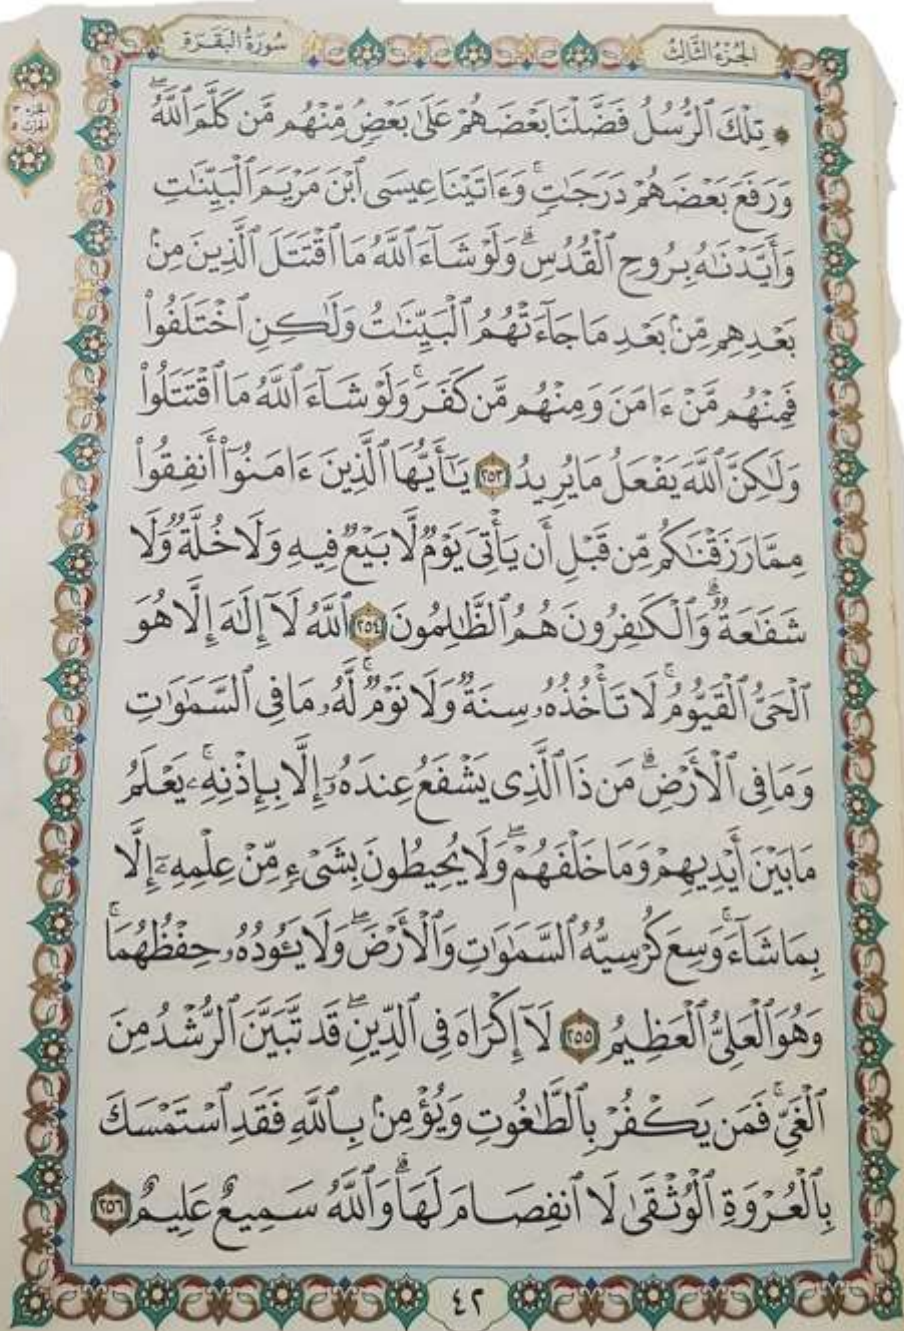 الجُزْءُ الثَّالِثُ
سُورَةُ البَقَرَةِ
۞ تِلْكَ ٱلرُّسُلُ فَضَّلْنَا بَعْضَهُمْ عَلَىٰ بَعْضٍۘ مِّنْهُم مَّن كَلَّمَ ٱللَّهُۖ
وَرَفَعَ بَعْضَهُمْ دَرَجَٰتٍۚ وَءَاتَيْنَا عِيسَى ٱبْنَ مَرْيَمَ ٱلْبَيِّنَٰتِ
وَأَيَّدْنَٰهُ بِرُوحِ ٱلْقُدُسِۗ وَلَوْ شَآءَ ٱللَّهُ مَا ٱقْتَتَلَ ٱلَّذِينَ مِنۢ
بَعْدِهِم مِّنۢ بَعْدِ مَا جَآءَتْهُمُ ٱلْبَيِّنَٰتُ وَلَٰكِنِ ٱخْتَلَفُوا۟
فَمِنْهُم مَّنْ ءَامَنَ وَمِنْهُم مَّن كَفَرَۚ وَلَوْ شَآءَ ٱللَّهُ مَا ٱقْتَتَلُوا۟
وَلَٰكِنَّ ٱللَّهَ يَفْعَلُ مَا يُرِيدُ ٢٥٣ يَٰٓأَيُّهَا ٱلَّذِينَ ءَامَنُوٓا۟ أَنفِقُوا۟
مِمَّا رَزَقْنَٰكُم مِّن قَبْلِ أَن يَأْتِىَ يَوْمٌ لَّا بَيْعٌ فِيهِ وَلَا خُلَّةٌ وَلَا
شَفَٰعَةٌۗ وَٱلْكَٰفِرُونَ هُمُ ٱلظَّٰلِمُونَ ٢٥٤ ٱللَّهُ لَآ إِلَٰهَ إِلَّا هُوَ
ٱلْحَىُّ ٱلْقَيُّومُۚ لَا تَأْخُذُهُۥ سِنَةٌ وَلَا نَوْمٌۚ لَّهُۥ مَا فِى ٱلسَّمَٰوَٰتِ
وَمَا فِى ٱلْأَرْضِۗ مَن ذَا ٱلَّذِى يَشْفَعُ عِندَهُۥٓ إِلَّا بِإِذْنِهِۦۚ يَعْلَمُ
مَا بَيْنَ أَيْدِيهِمْ وَمَا خَلْفَهُمْۖ وَلَا يُحِيطُونَ بِشَىْءٍ مِّنْ عِلْمِهِۦٓ إِلَّا
بِمَا شَآءَۚ وَسِعَ كُرْسِيُّهُ ٱلسَّمَٰوَٰتِ وَٱلْأَرْضَۖ وَلَا يَـُٔودُهُۥ حِفْظُهُمَاۚ
وَهُوَ ٱلْعَلِىُّ ٱلْعَظِيمُ ٢٥٥ لَآ إِكْرَاهَ فِى ٱلدِّينِۖ قَد تَّبَيَّنَ ٱلرُّشْدُ مِنَ
ٱلْغَىِّۚ فَمَن يَكْفُرْ بِٱلطَّٰغُوتِ وَيُؤْمِنۢ بِٱللَّهِ فَقَدِ ٱسْتَمْسَكَ
بِٱلْعُرْوَةِ ٱلْوُثْقَىٰ لَا ٱنفِصَامَ لَهَاۗ وَٱللَّهُ سَمِيعٌ عَلِيمٌ ٢٥٦
٤٢